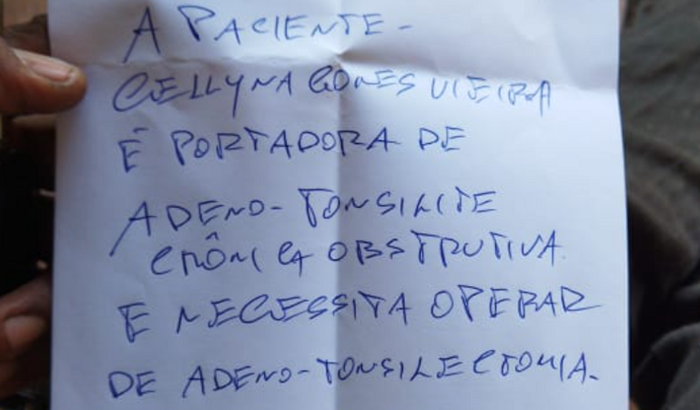 A PACIENTE -
CELLYNA GOMES VIEIRA
É PORTADORA DE
ADENO-TONSILITE
CRÔNICA OBSTRUTIVA
E NECESSITA OPERAR
DE ADENO-TONSILECTOMIA.